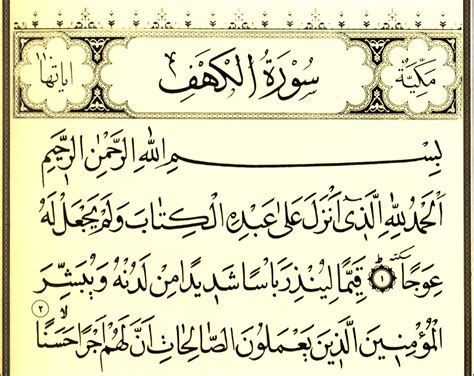 مكيّة سُورَةُ الكهف اياتها
بِسْمِ اللّٰهِ الرَّحْمٰنِ الرَّحِيمِ
اَلْحَمْدُ لِلّٰهِ الَّذِٓى اَنْزَلَ عَلٰى عَبْدِهِ الْكِتَابَ وَلَمْ يَجْعَلْ لَهُ
عِوَجًا ۜ ١ قَيِّمًا لِيُنْذِرَ بَأْسًا شَدِيدًا مِنْ لَدُنْهُ وَيُبَشِّرَ
الْمُؤْمِنِينَ الَّذِينَ يَعْمَلُونَ الصَّالِحَاتِ اَنَّ لَهُمْ اَجْرًا حَسَنًا ۙ ٢